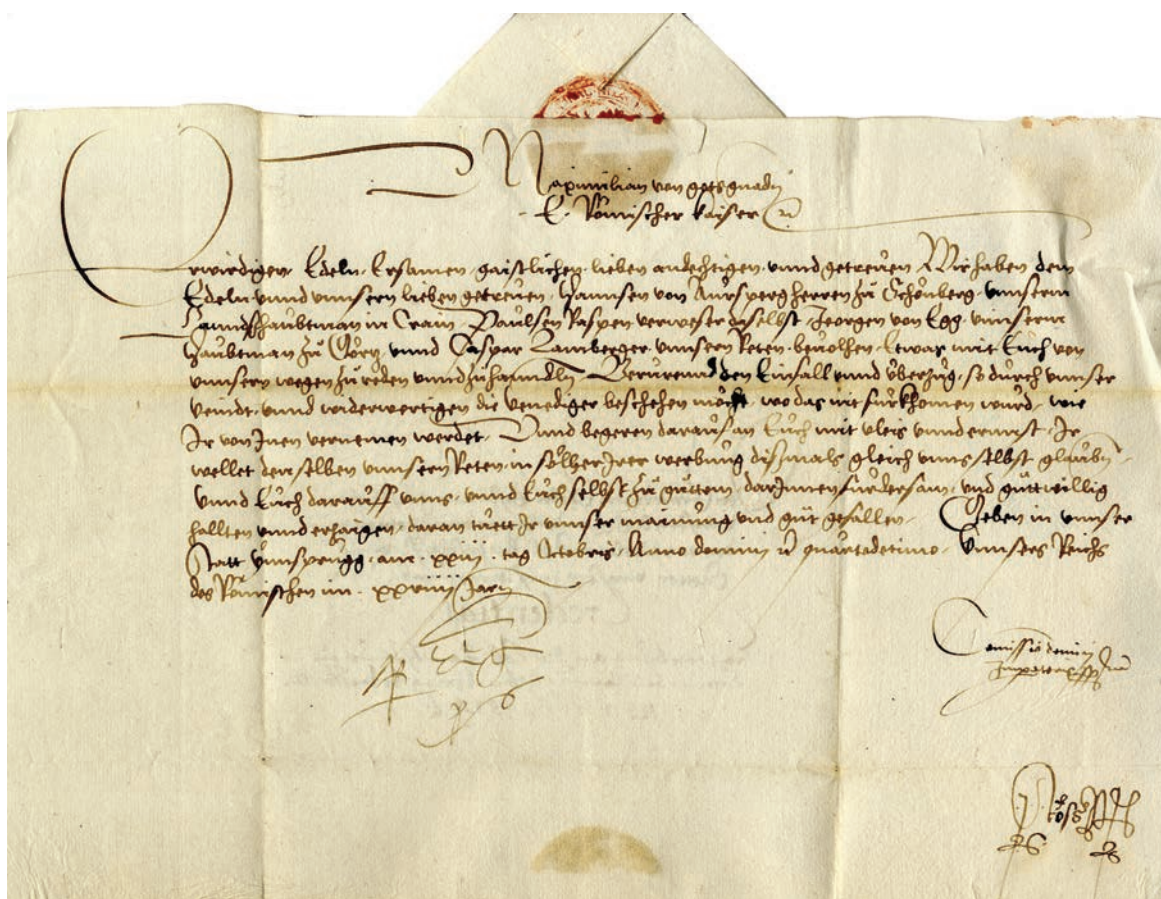 Maximilian von gots gnadn
E. Römischer kaiser etc
Erwirdigen, Edeln, Ersamen, gaistlichen, lieben andechtigen, vnnd getrewen Wir haben dem
Edeln vnnd vnnsern lieben getrewen, Hannsen von Aursperg herren zu Schönberg vnnserm
Lanndshaubtman in Crain, Paulsen Raspen verweser daselbst, Jeorgen von Egg vnnserm
Haubtman zu Görtz vnnd Caspar Lamberger vnnsern Reten, beuolhen, Etwas mit Euch von
vnnsern wegen zu reden vnnd zuhanndln, Berürennd den Einfall vnnd überzug, so durch vnnser
veindt vnnd widerwertigen die Venediger beschehen möcht, wo das nit fürkhomen wurd, wie
Ir von Inen vernemen werdet, Vnnd begeren darauf an Euch mit vleis vnnd ernnst, Ir
wellet denselben vnnsern Reten, in sölher Irer werbung diszmals gleich vnns selbst glaubn,
vnnd Euch darauff vnns, vnnd Euch selbst zu guttem, darInnen fürdersam, vnd guttwillig
hallten vnnd erzaigen, daran tuett Ir vnnser mainung vnd gut gefallen, Geben in vnnser
Statt Ynnsprugg, am, xxiiij, tag Octobris, Anno domini etc quartodecimo, Vnnsers Reichs
des Römischen im, xxviiij Jarn
Comissio domini
Imperatoris